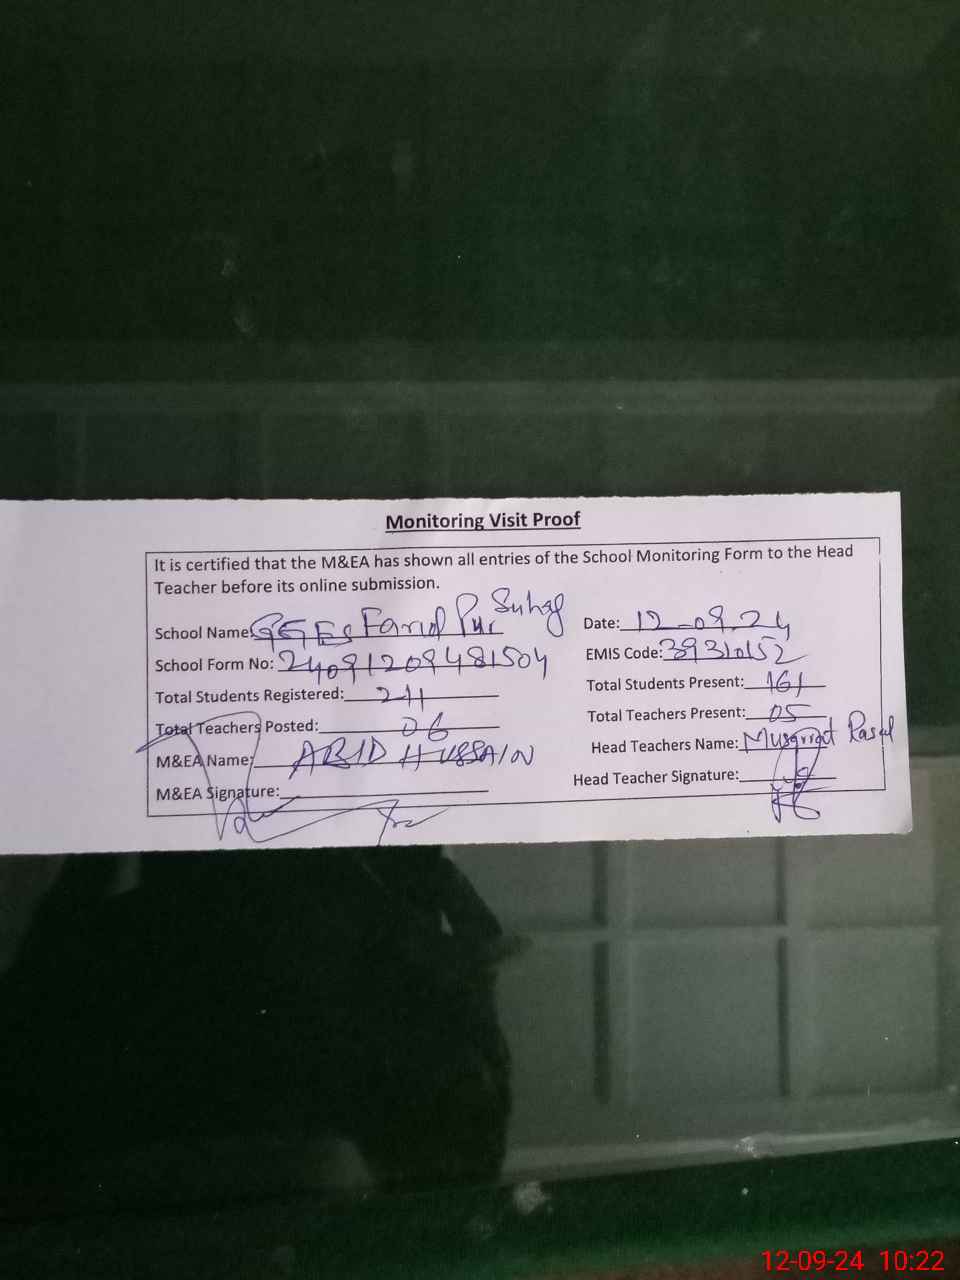 Monitoring Visit Proof
It is certified that the M&EA has shown all entries of the School Monitoring Form to the Head
Teacher before its online submission.
School Name: GGES Farid Pur Suhag
Date: 12-09-24
School Form No: 24091209481504
EMIS Code: 39310152
Total Students Registered: 211
Total Students Present: 161
Total Teachers Posted: 06
Total Teachers Present: 05
M&EA Name: ABID HUSSAIN
Head Teachers Name: Musarrat Rasul
M&EA Signature:
Head Teacher Signature:
12-09-24 10:22